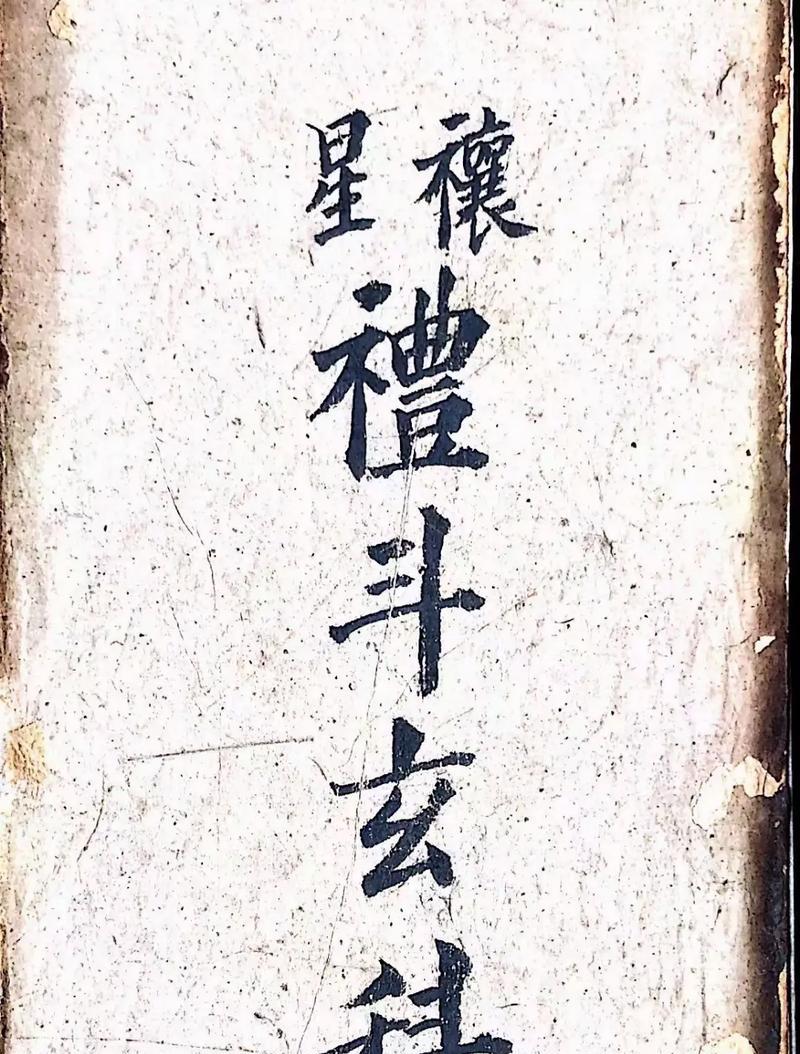 禳星
禮斗玄科